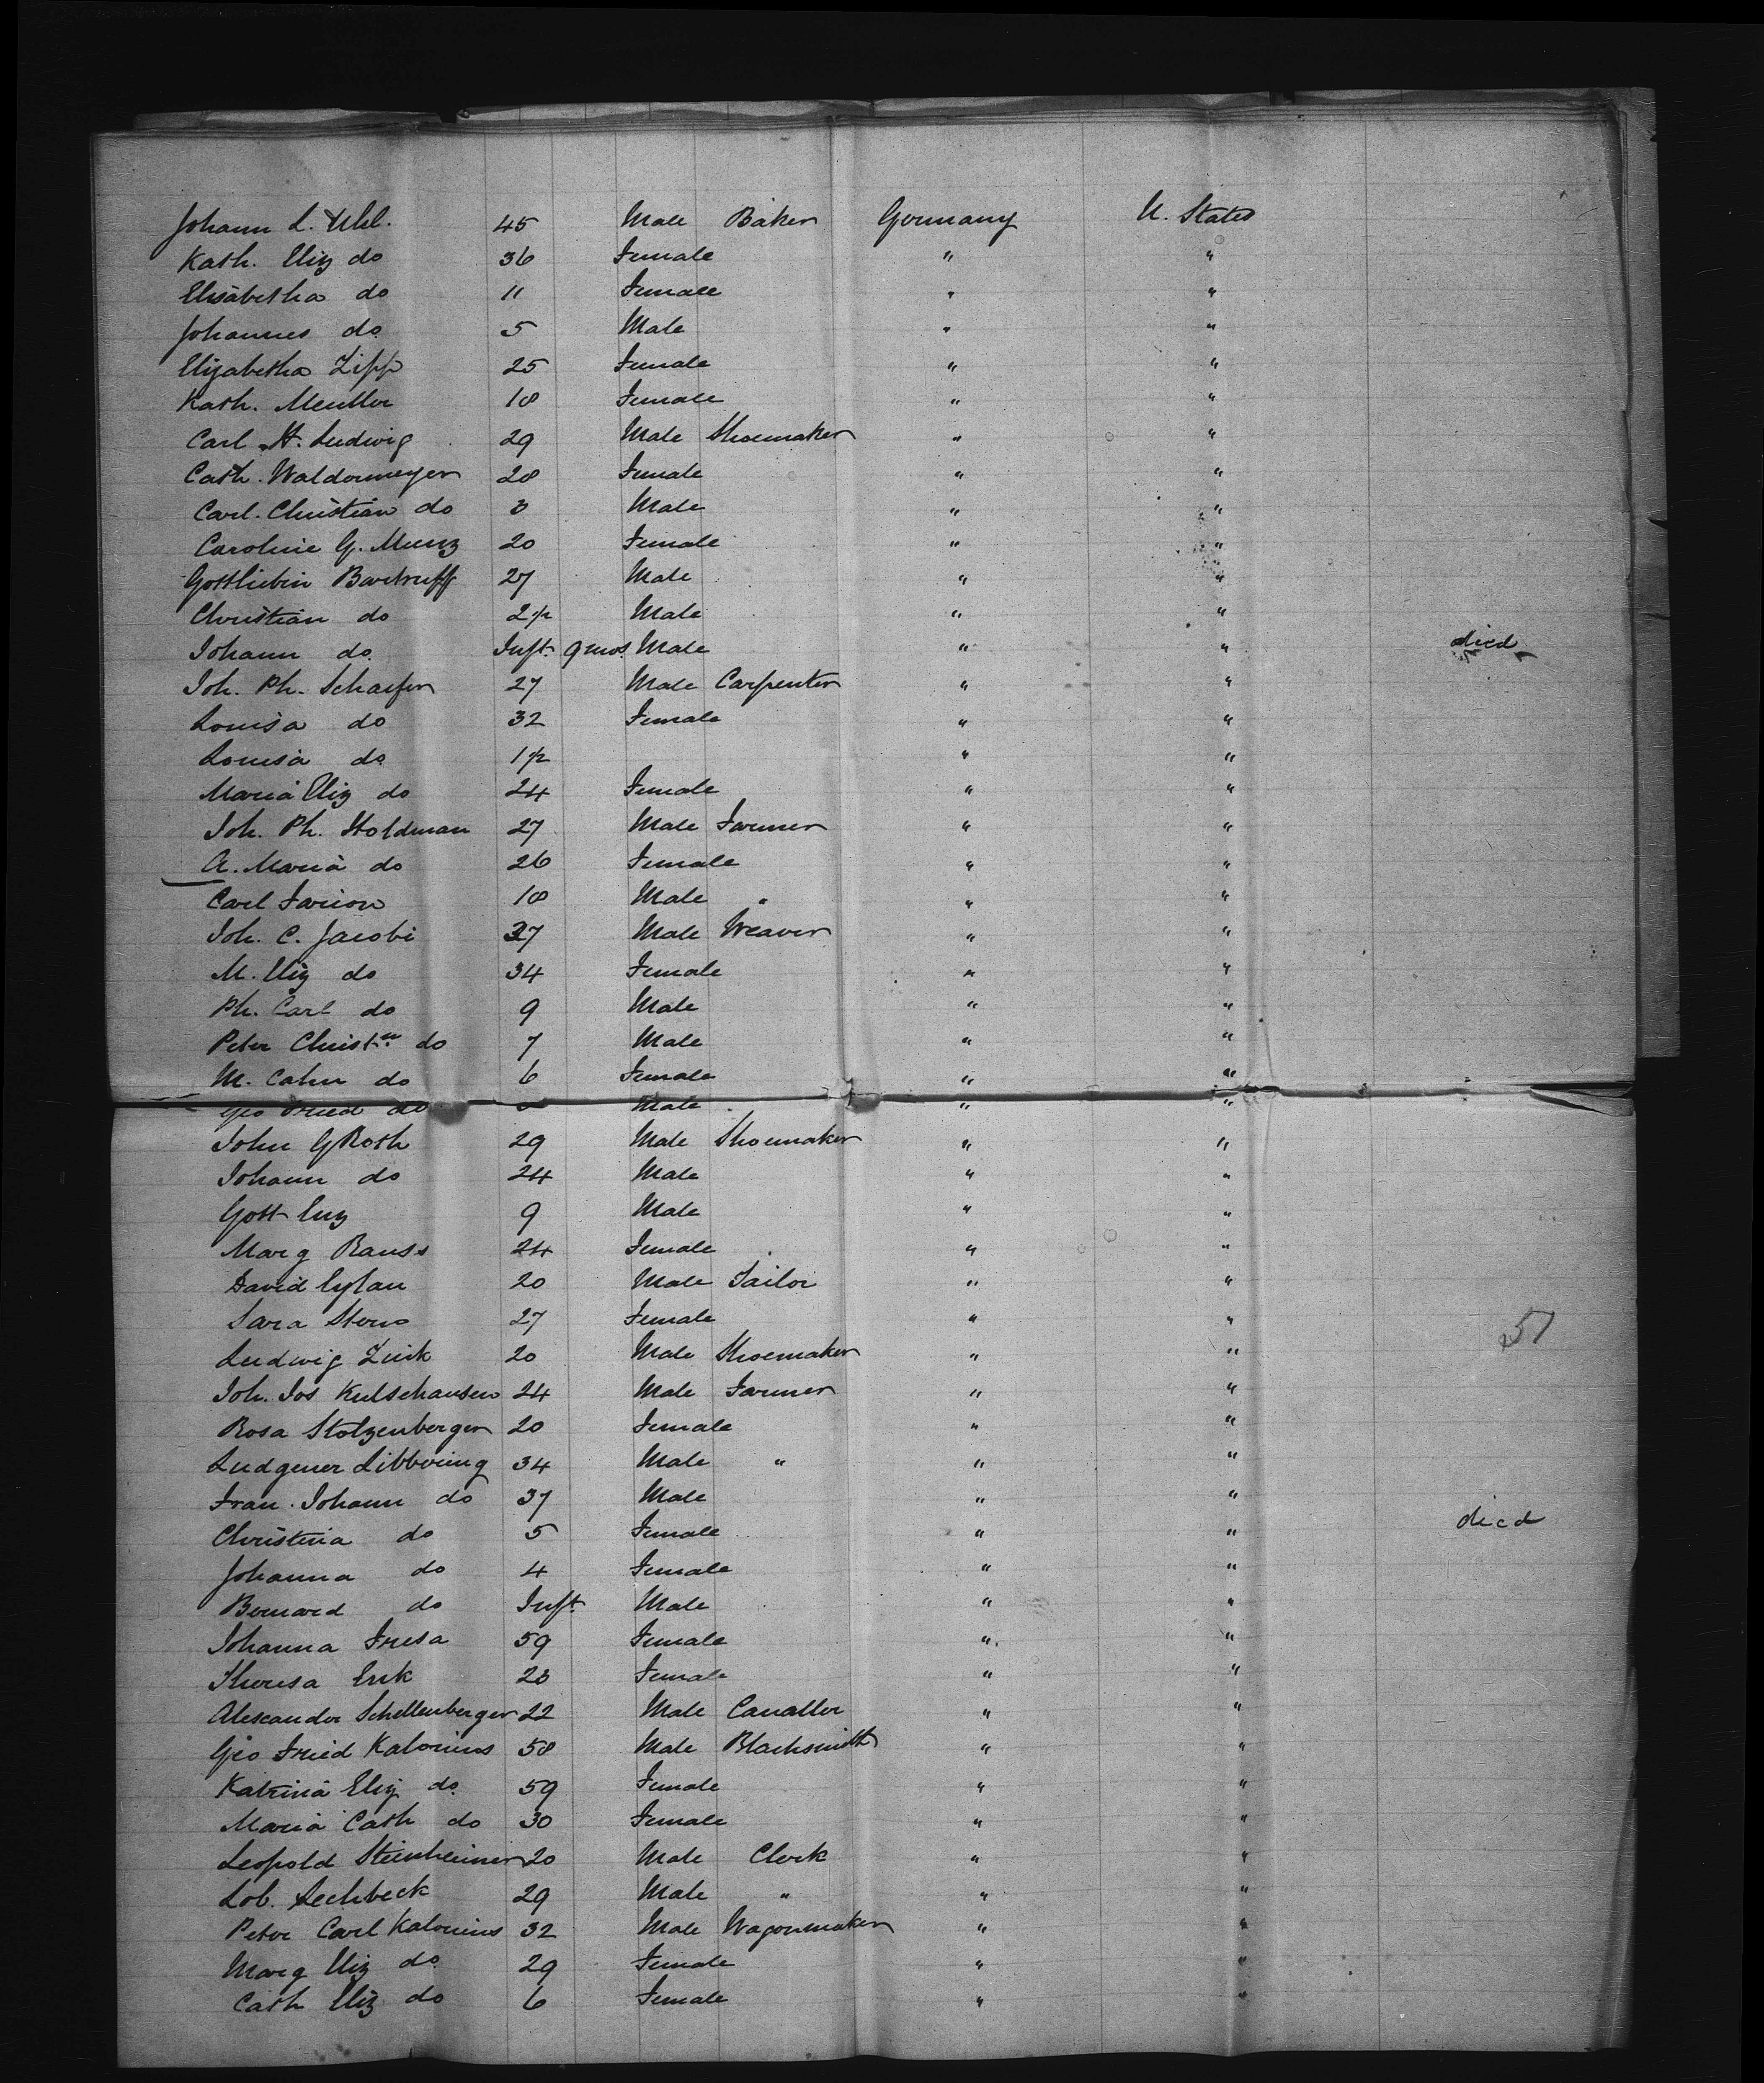 Johann L. Uhl. 45 Male Baker Germany U. States
Kath. Eliz do 36 Female " "
Elisabetha do 11 Female " "
Johannes do. 5 Male " "
Elizabetha Zipp 25 Female " "
Kath. Meutter 18 Female " "
Carl H. Ludwig 29 Male Shoemaker " "
Cath. Waldenmeyer 28 Female " "
Carl. Christian do 3 Male " "
Caroline G. Munz 20 Female " "
Gottliebin Bartruff 27 Male " "
Christian do 2 1/2 Male " "
Johann do. Inft. 9 mos. Male " " died
Joh. Ph. Schaefer 27 Male Carpenter " "
Louisa do 32 Female " "
Louisa do 1 1/2 " "
Maria Eliz do 24 Female " "
Joh. Ph. Holdman 27 Male Farmer " "
A. Maria do 26 Female " "
Carl Farion 18 Male " " "
Joh. C. Jacobi 37 Male Weaver " "
M. Eliz do 34 Female " "
Ph. Carl do 9 Male " "
Peter Christn. do 7 Male " "
M. Cahn do 6 Female " "
Geo Fried do Male " "
John G Roth 29 Male Shoemaker " "
Johann do 24 Male " "
Gott 9 Male " "
Marg Rauss 24 Female " "
David 20 Male Tailor " "
Sara Stern 27 Female " "
51
Ludwig Zink 20 Male Shoemaker " "
Joh. Jos Kulschausen 24 Male Farmer " "
Rosa Stolzenberger 20 Female " "
Ludgener Libboring 34 Male " " "
Frau. Johann do 37 Male " "
Christina do 5 Female " " died
Johanna do 4 Female " "
Bernard do Inft. Male " "
Johanna Fresa 59 Female " "
Theresa Enk 23 Female " "
Alexander Schellenberger 22 Male " "
Geo Fried Kalonius 58 Male Blacksmith " "
Katrina Eliz do. 59 Female " "
Maria Cath do 30 Female " "
Leopold Steinheimer 20 Male Clerk " "
Lob. Lechbeck 29 Male " " "
Peter Carl Kalonius 32 Male Wagonmaker " "
Marg Eliz do 29 Female " "
Cath Eliz do 6 Female " "